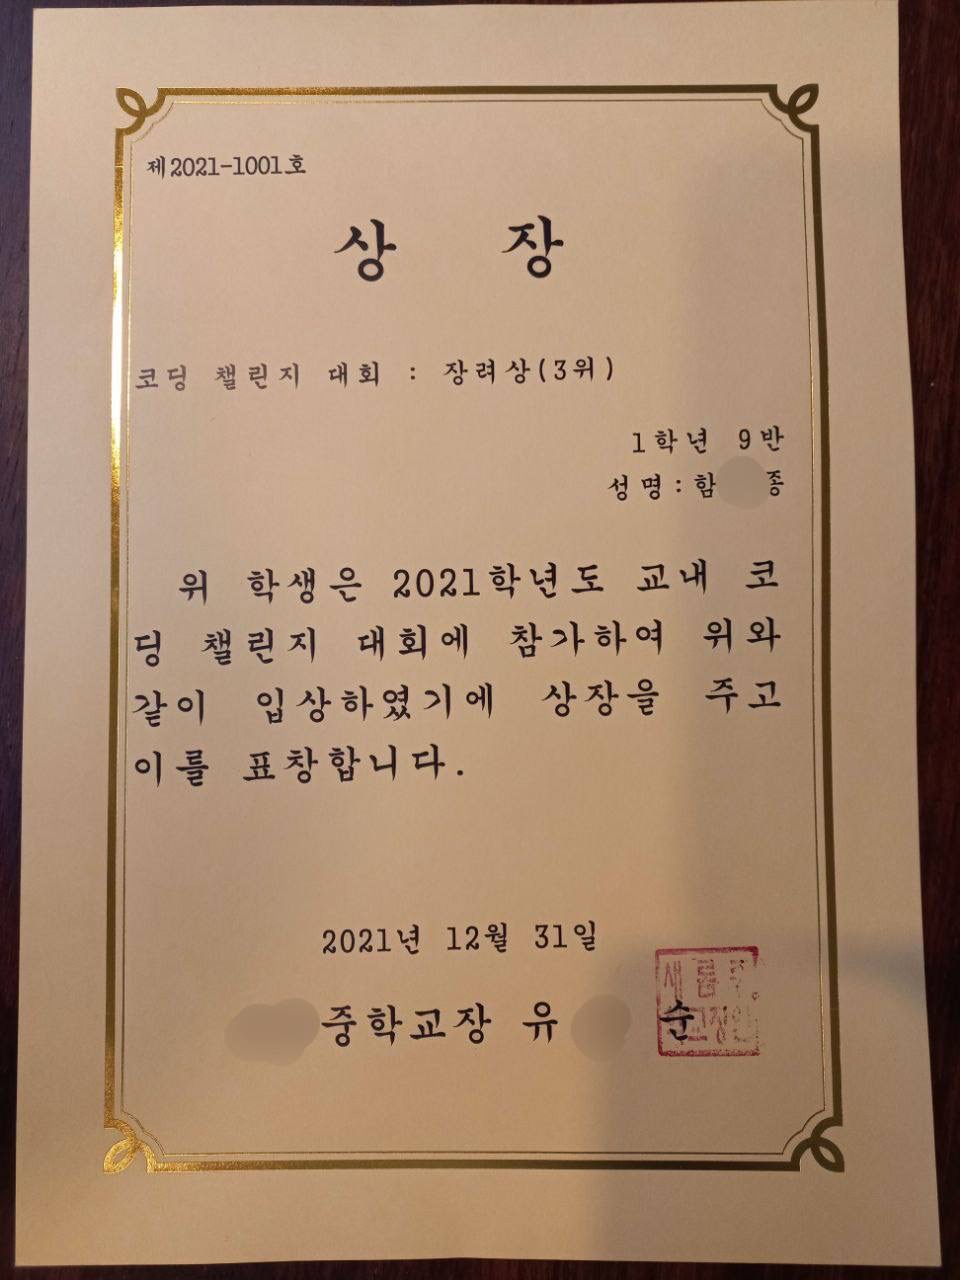 제2021-1001호
상 장
코딩 챌린지 대회 : 장려상(3위)
1학년 9반
성명:함 종
위 학생은 2021학년도 교내 코
딩 챌린지 대회에 참가하여 위와
같이 입상하였기에 상장을 주고
이를 표창합니다.
2021년 12월 31일
중학교장 유 순